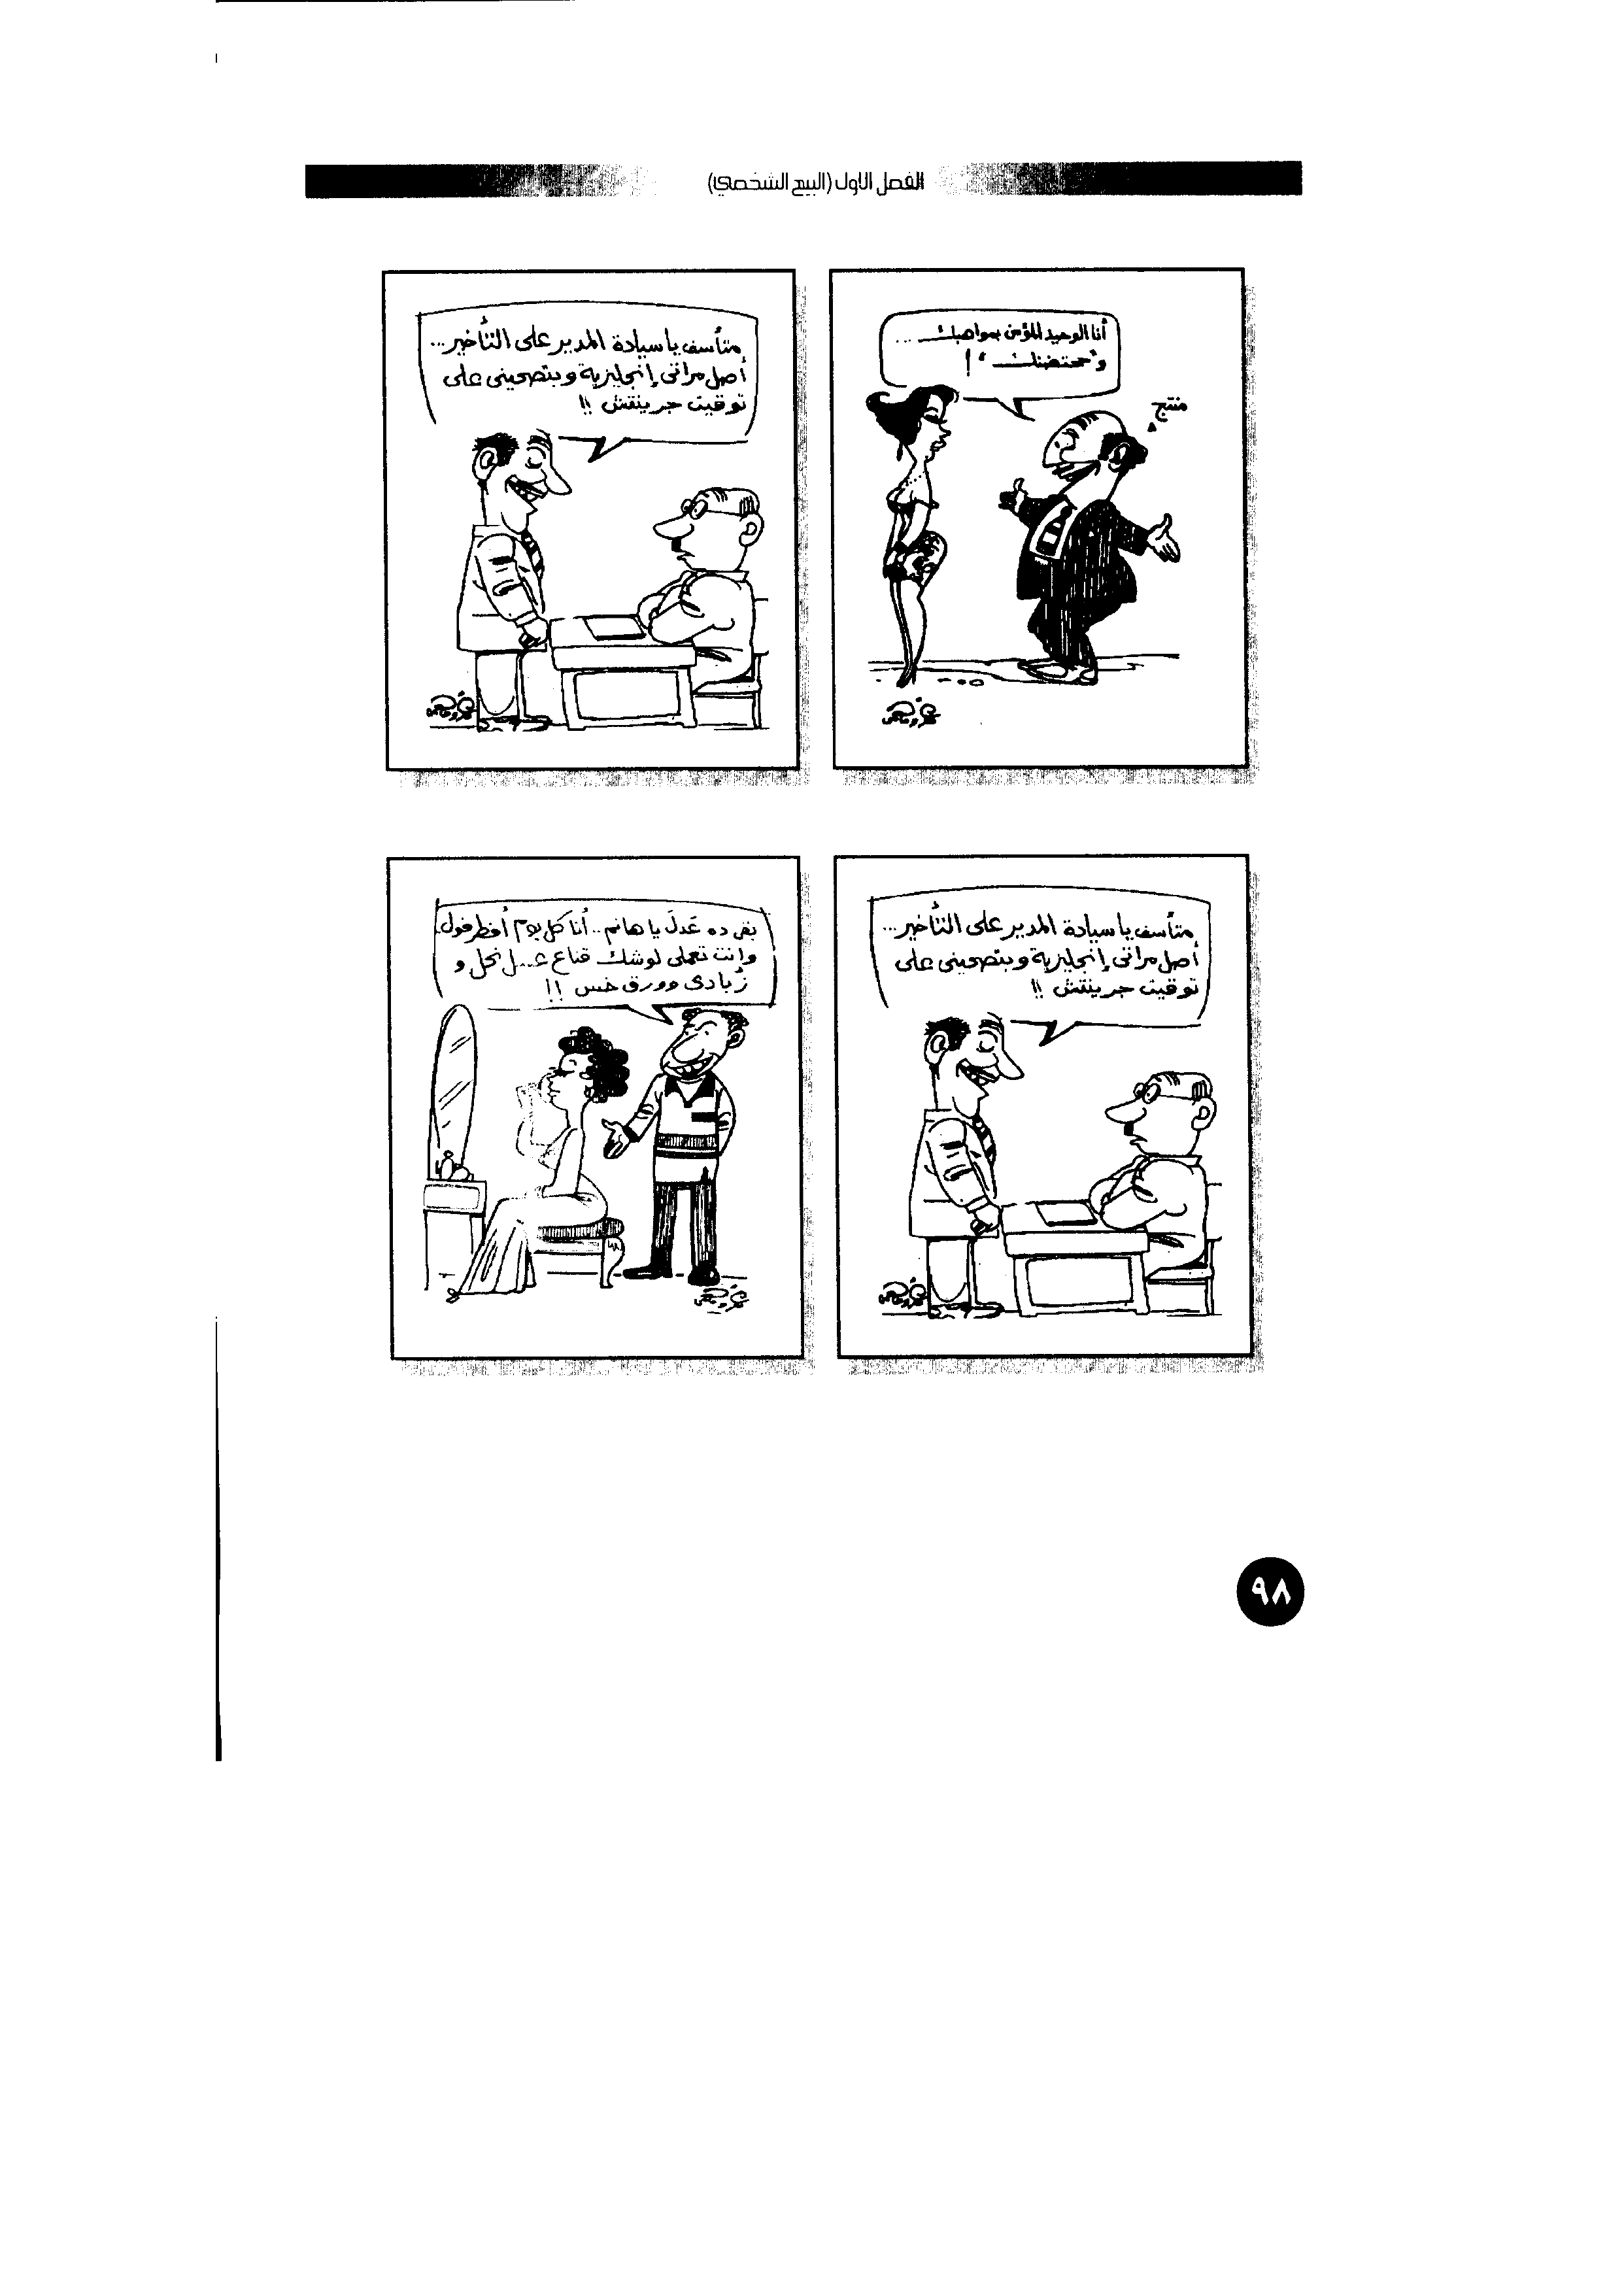 الفصل الاول (البيع الشخصي)
أنا الوحيد المؤمن بمواهبك ...
و"حمتضنك" !
منتج
متأسف يا سيادة المدير على التأخير ...
أصل مراتى إنجليزية وبتصحينى على
توقيت جرينتش !!
متأسف يا سيادة المدير على التأخير ...
أصل مراتى إنجليزية وبتصحينى على
توقيت جرينتش !!
بقى ده عَدل يا هانم .. أنا كل يوم أفطر فول
وانت تعملى لوشك قناع عسل نحل و
زبادى وورق خس !!
٩٨